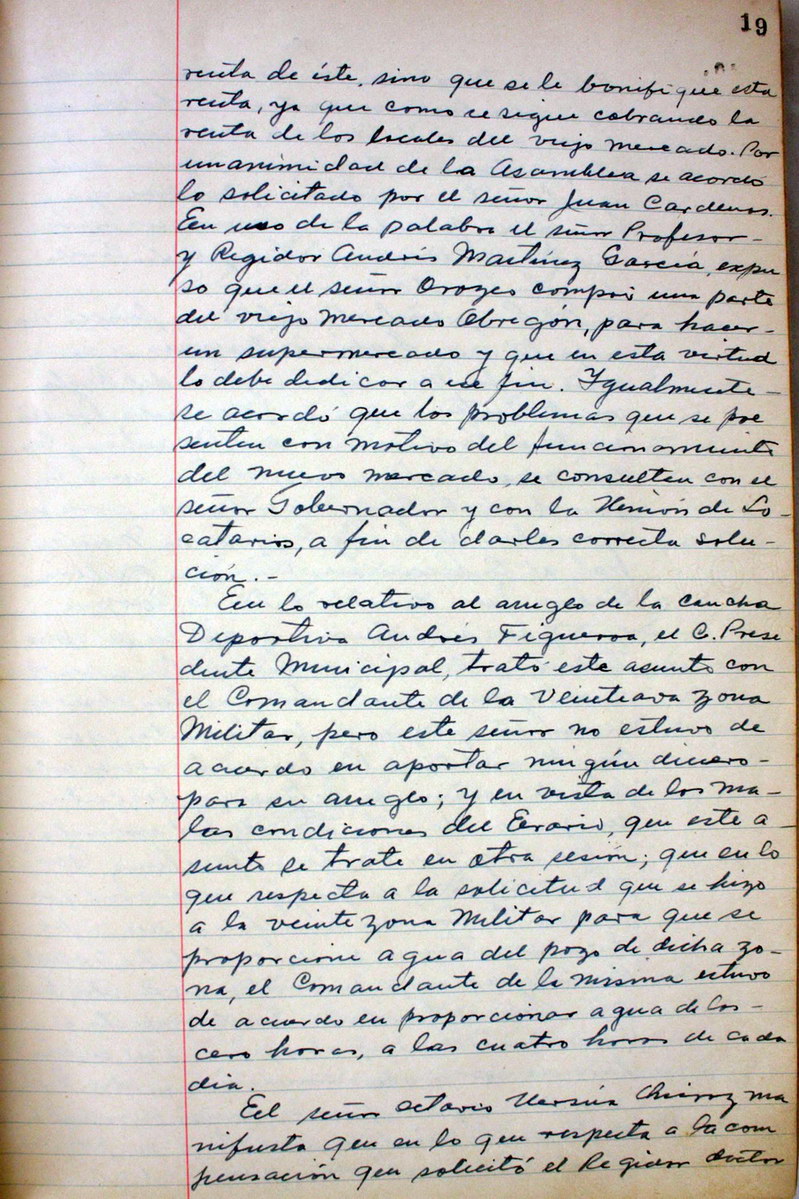 19
renta de éste, sino que se le bonifique esta
renta, ya que como se sigue cobrando la
renta de los locales del viejo mercado. Por
unanimidad de la Asamblea se acordó
lo solicitado por el señor Juan Cardenas.
En uso de la palabra el señor Profesor-
y Regidor Andrés Martínez García, expu
so que el señor Orozco compró una parte
del viejo Mercado Obregón, para hacer-
un supermercado y que en esta virtud
lo debe dedicar a ese fin. Igualmente-
se acordó que los problemas que se pre
senten con motivo del funcionamiento
del nuevo mercado, se consulten con el
señor Gobernador y con la Unión de Lo-
catarios, a fin de darles correcta solu-
ción.-
En lo relativo al arreglo de la cancha
Deportiva Andrés Figueroa, el C. Presi
dente Municipal, trató este asunto con
el Comandante de la Veinteava zona
Militar, pero este señor no estuvo de
acuerdo en aportar ningún dinero-
para su arreglo; y en vista de los ma-
las condiciones del Erario, que este a-
sunto se trate en otra sesión; que en lo
que respecta a la solicitud que se hizo
a la veinte zona Militar para que se
proporcione agua del pozo de dicha zo-
na, el Comandante de la misma estuvo
de acuerdo en proporcionar agua de las-
cero horas, a las cuatro horas de cada
dia.
El señor Octavio Ursúa ma
nifiesta que en lo que respecta a la com
pensación que solicitó el Regidor doctor